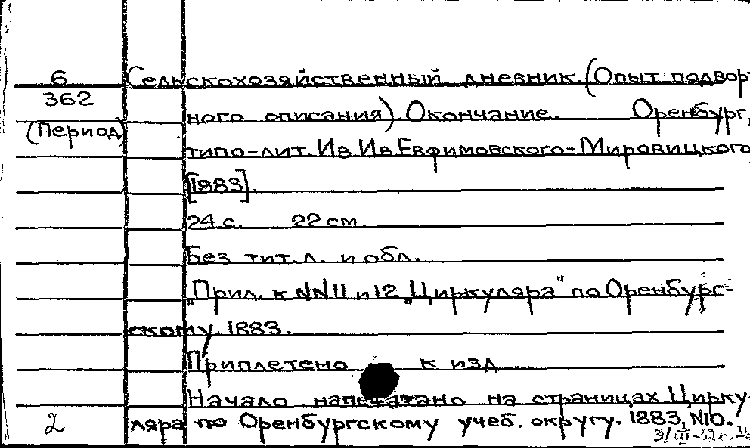 6
362
(Период)
Сельскохозяйственный дневник. (Опыт подвор-
ного описания). Окончание. Оренбург,
типо-лит. Ив. Ив. Евфимовского-Мировицкого
[1883].
24 с. 22 см.
Без тит. л. и обл.
"Прил. к №№ 11 и 12 "Циркуляра" по Оренбургс-
скому 1883.
Приплетено к изд
Начало напечатано на страницах Цирку-
ляра по Оренбургскому учеб. округу. 1883, №10.
2